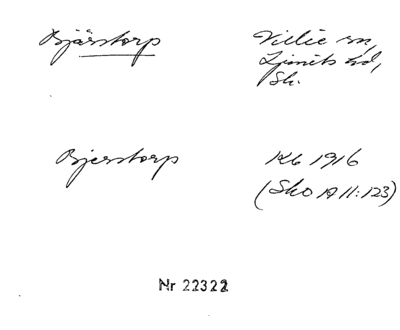 Bjärstorp
Villie sn,
Ljunits hd,
Sk.
Bjerstorp
Kb 1916
(SkO A 11:123)
Nr 22322